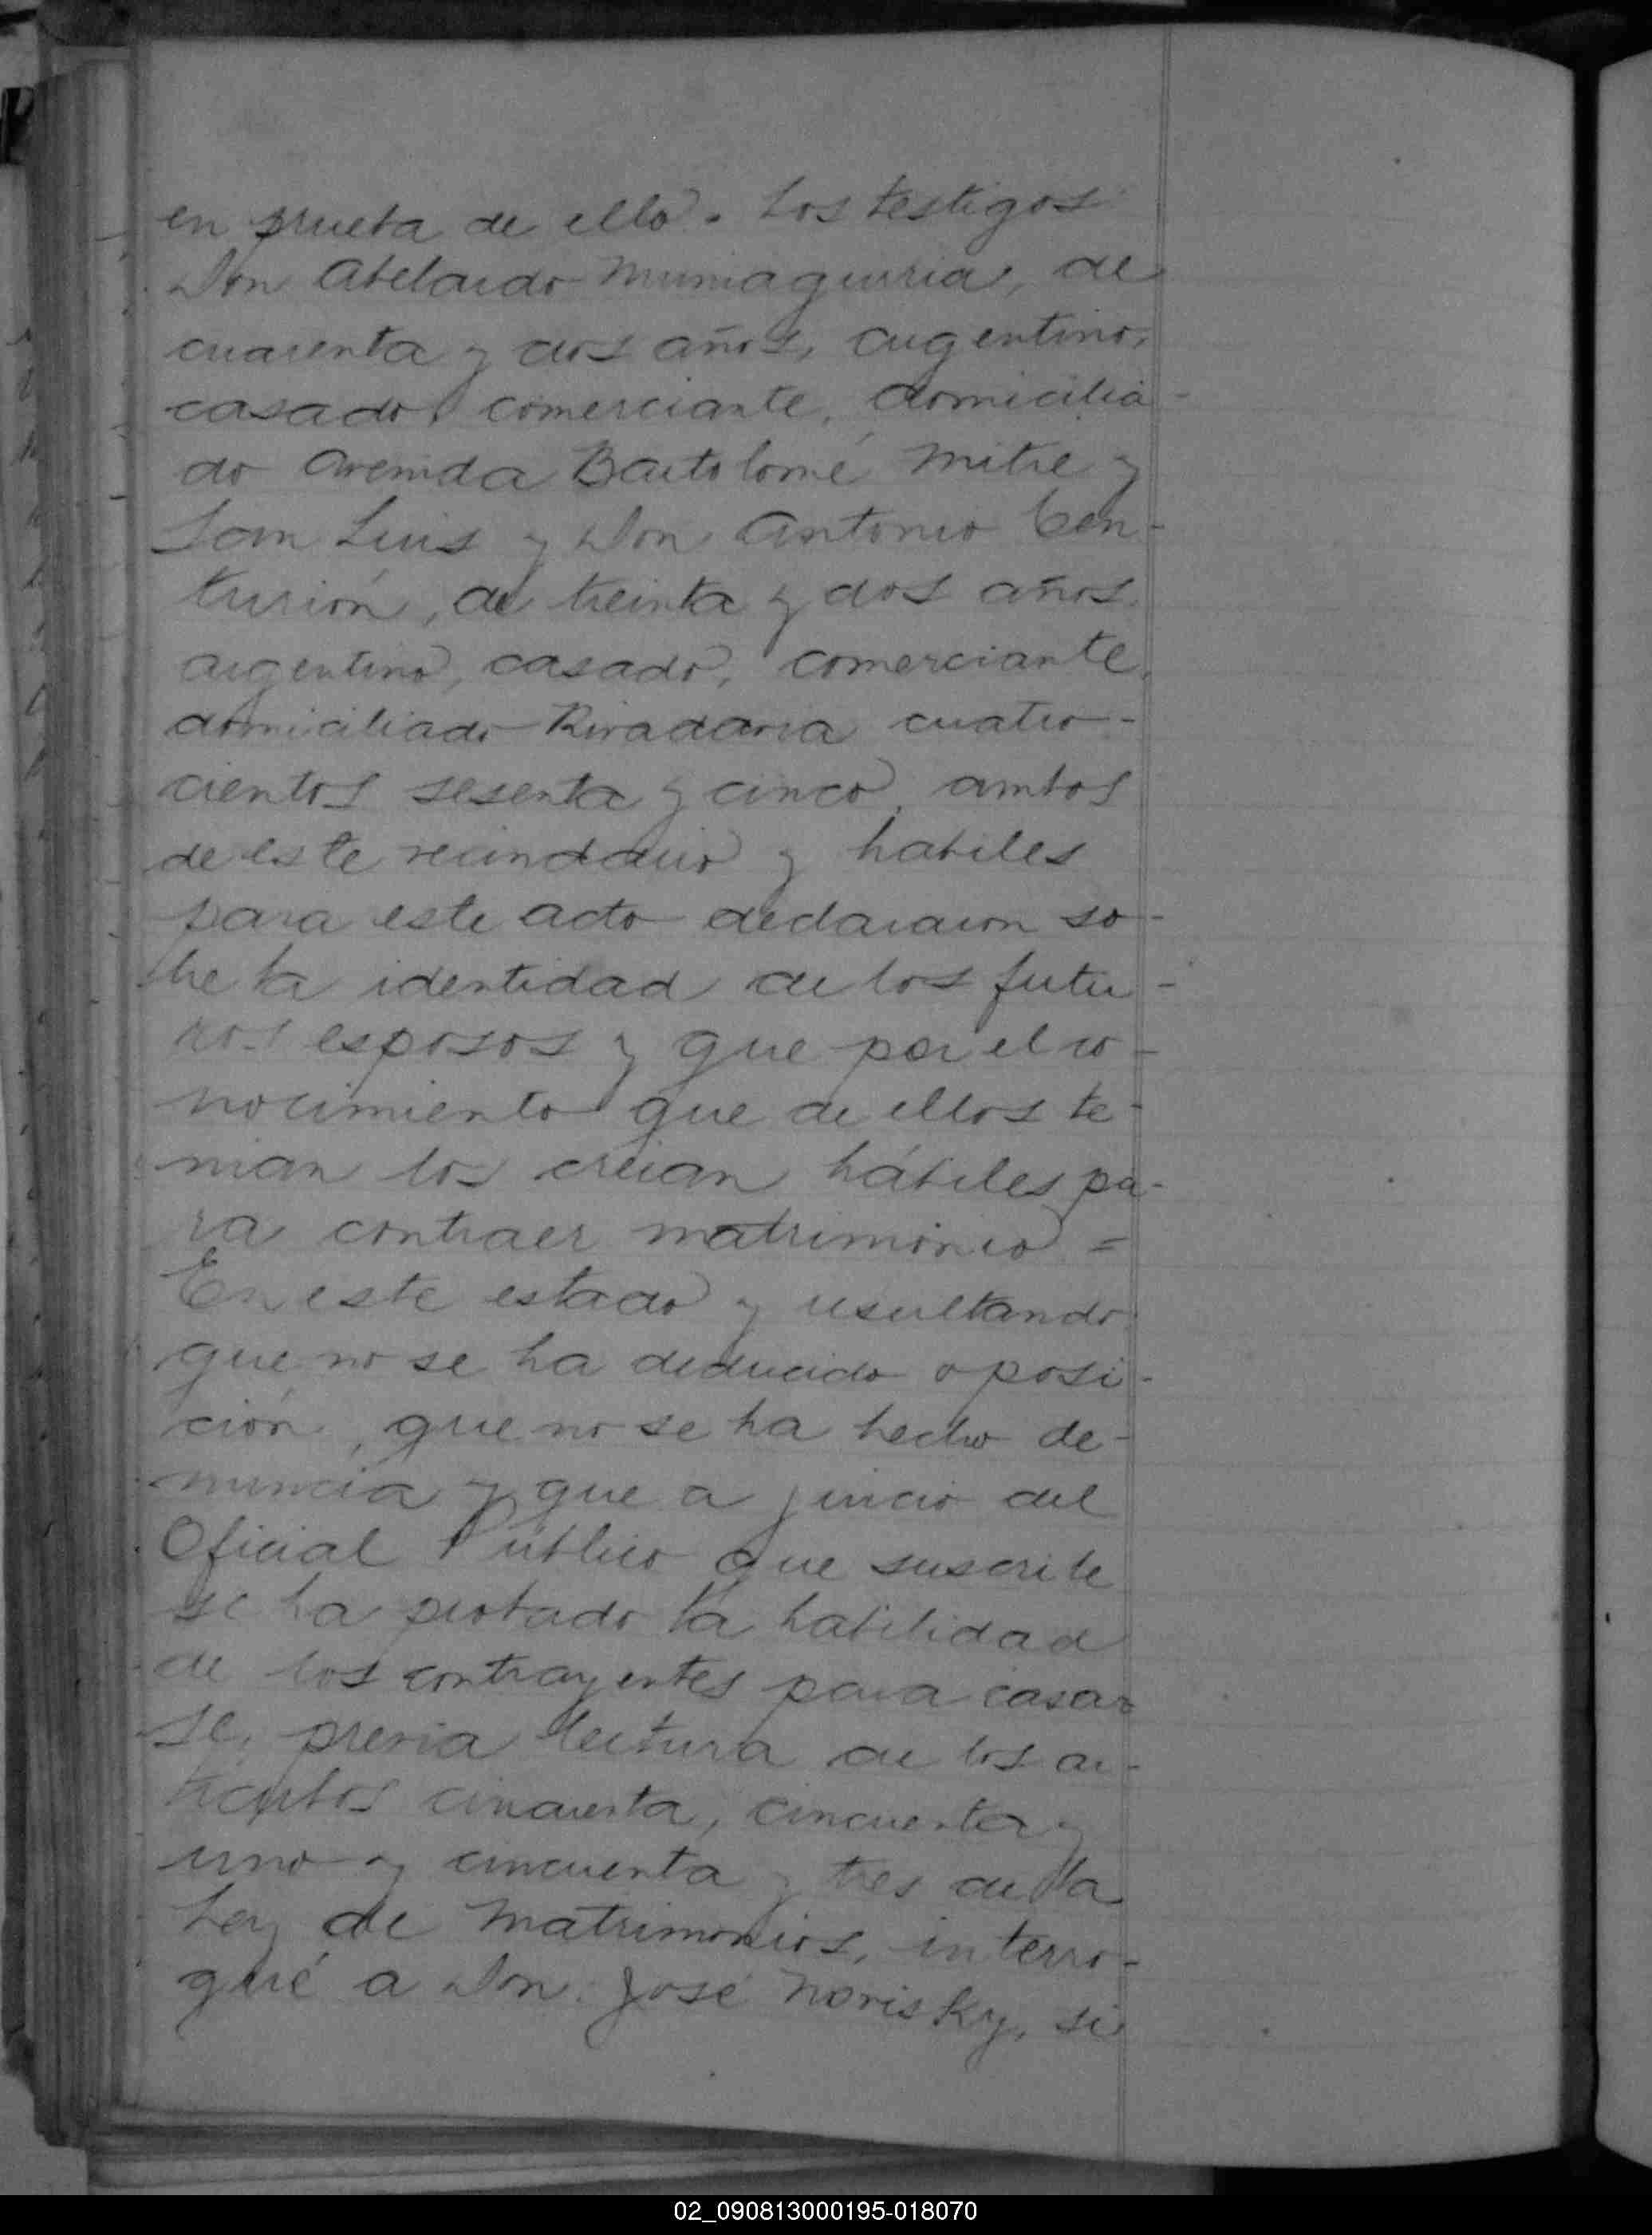 en prueba de ello. Los testigos
Don Abelardo Muniagurria, de
cuarenta y dos años, argentino,
casado, comerciante, domicilia-
do Avenida Bartolomé Mitre y
San Luis y Don Antonio Cen-
turión, de treinta y dos años
argentino, casado, comerciante,
domiciliado Rivadavia cuatro-
cientos sesenta y cinco, ambos
de este vecindario y habiles
para este acto declararon so-
bre la identidad de los futu-
ros esposos y que por el co-
nocimiento que de ellos te-
nian los creian hábiles pa-
ra contraer matrimonio =
En este estado y resultando
que no se ha deducido oposi-
ción, que no se ha hecho de-
nuncia y que a juicio del
Oficial Público que suscribe
se ha probado la habilidad
de los contrayentes para casar
se, previa lectura de los ar-
tículos cincuenta, cincuenta y
uno y cincuenta y tres de la
Ley de Matrimonios, interro-
gué a Don José Norisky, si
02_090813000195-018070